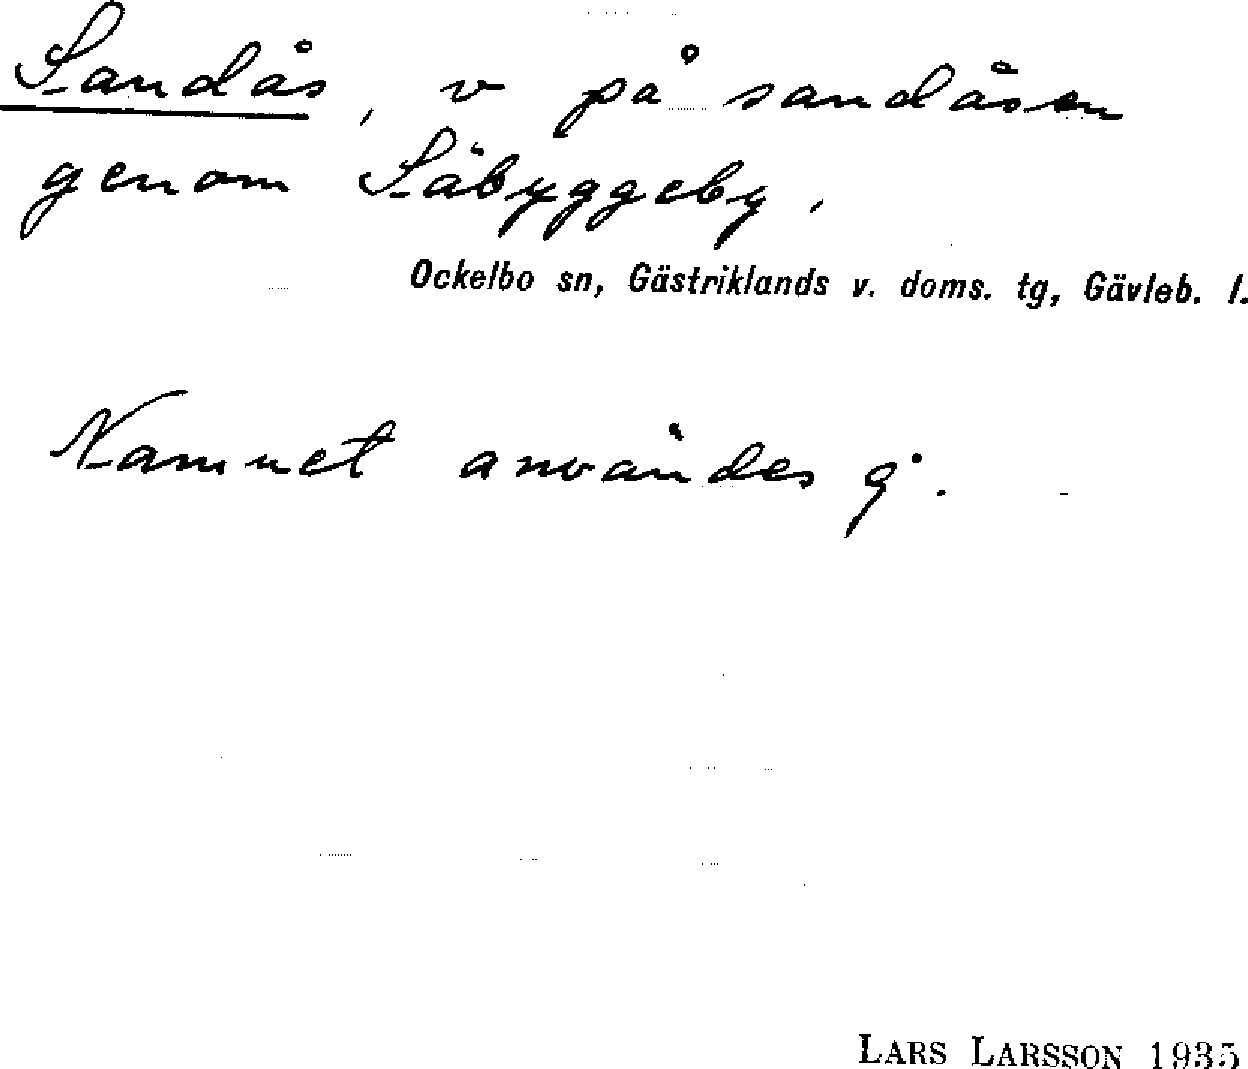 Sandås, v på sandåsen
genom Säbyggeby.
Ockelbo sn, Gästriklands v. doms. tg, Gävleb. l.
Namnet användes ej.
LARS LARSSON 1935